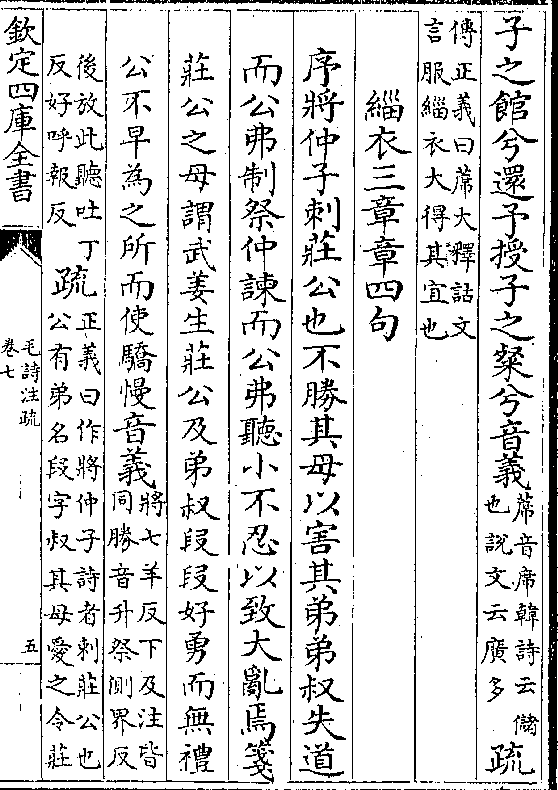 子之館兮還予授子之粲兮音義蓆音席韓詩云儲也說文云廣多疏
傳正義曰蓆大釋詁文言服緇衣大得其宜也
緇衣三章章四句
序將仲子刺莊公也不勝其母以害其弟弟叔失道
而公弗制祭仲諫而公弗聽小不忍以致大亂焉箋
莊公之母謂武姜生莊公及弟叔段段好勇而無禮
公不早為之所而使驕慢音義將七羊反下及注皆同勝音升祭側界反
後放此聽吐丁反好呼報反疏正義曰作將仲子詩者刺莊公也公有弟名段字叔其母愛之令莊
欽定四庫全書
毛詩注疏
卷七
五